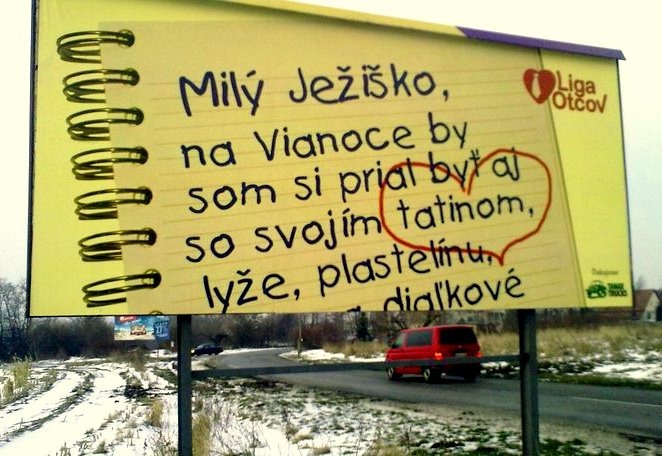 Milý Ježiško,
na Vianoce by
som si prial byť aj
so svojím tatinom,
lyže, plastelínu,
diaľkové
Liga
Otcov
Ďakujeme